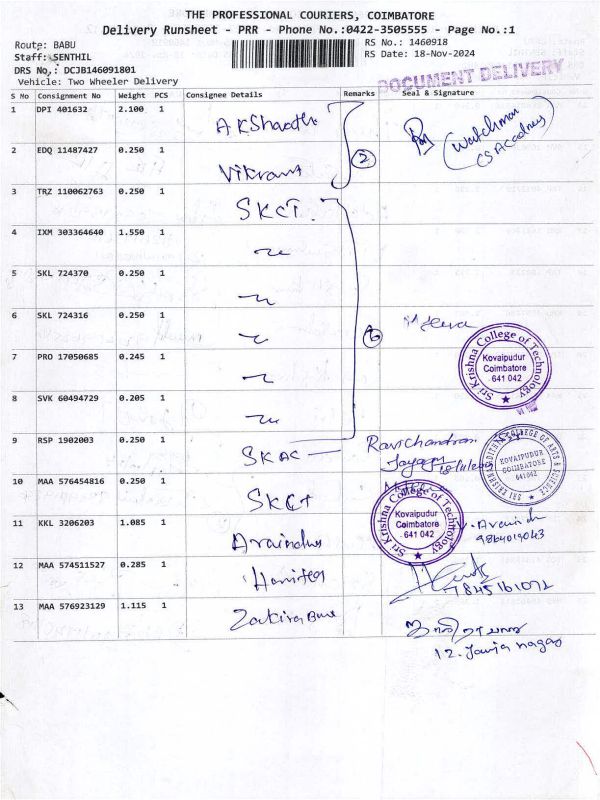 THE PROFESSIONAL COURIERS, COIMBATORE
Delivery Runsheet - PRR - Phone No.:0422-3505555 - Page No.:1
Route: BABU
RS No.: 1460918
Staff: SENTHIL
RS Date: 18-Nov-2024
DRS No.: DCJB146091801
DOCUMENT DELIVERY
Vehicle: Two Wheeler Delivery
S No Consignment No Weight PCS Consignee Details Remarks Seal & Signature
1 DPI 401632 2.100 1
(Watchman
2 EDQ 11487427 0.250 1 Vikrant 2
3 TRZ 110062763 0.250 1 SKCT.
4 IXM 303364640 1.550 1
5 SKL 724370 0.250 1
6 SKL 724316 0.250 1 6
Sri Krishna College of Technology
Kovaipudur
Coimbatore
641 042
7 PRO 17050685 0.245 1
8 SVK 60494729 0.205 1
9 RSP 1902003 0.250 1 SKAC
Ravichandran
COLLEGE OF ARTS & SCIENCE
KOVAIPUDUR
COIMBATORE
641042
10 MAA 576454816 0.250 1 SKCT
Sri Krishna College of Technology
Kovaipudur
Coimbatore
641 042
11 KKL 3206203 1.085 1
12 MAA 574511527 0.285 1
7845161072
13 MAA 576923129 1.115 1